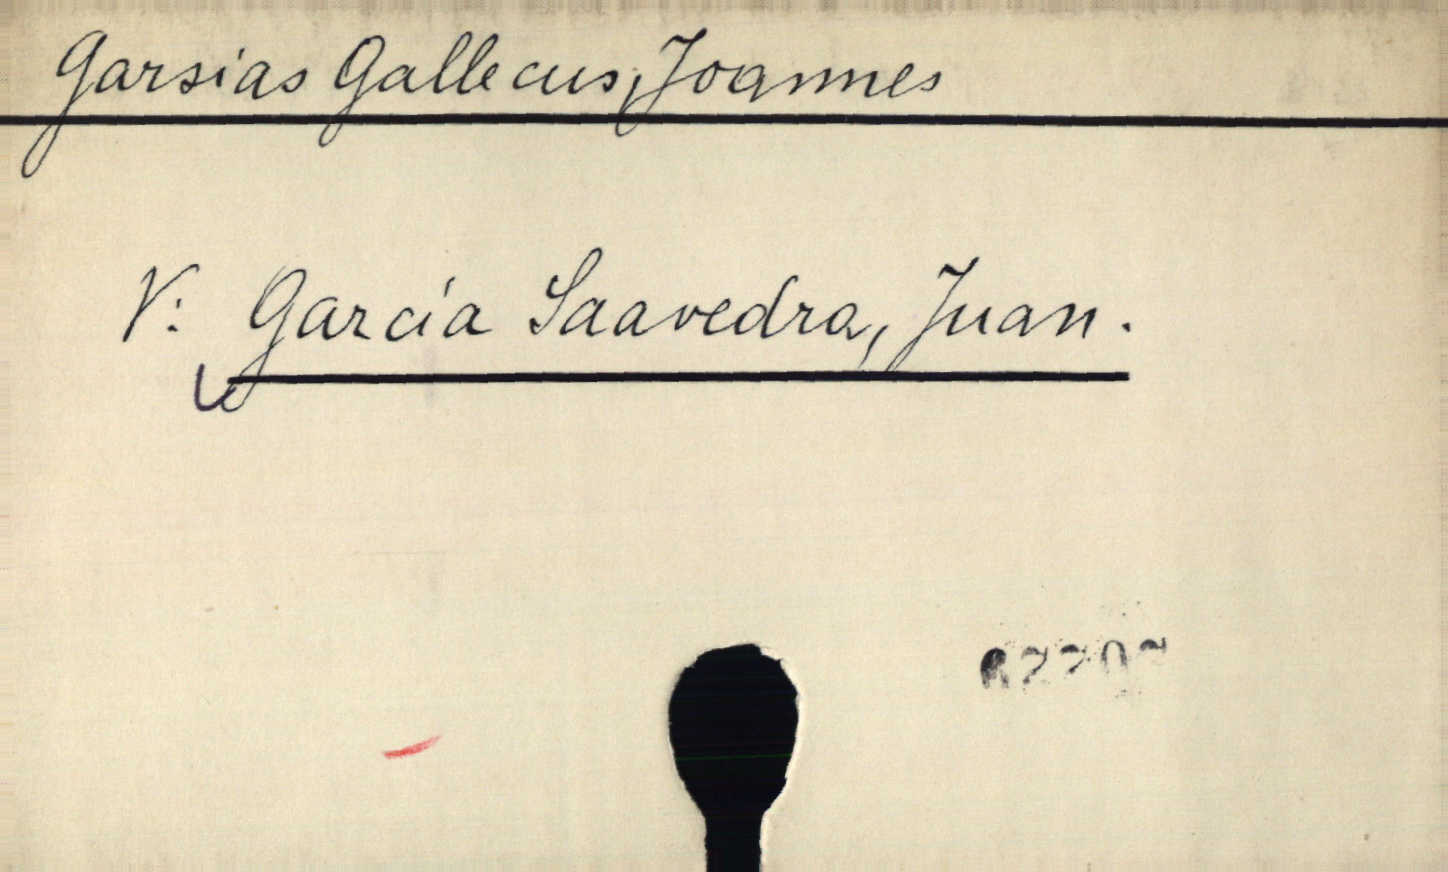 Garsias Gallecus, Joannes
V: García Saavedra, Juan.